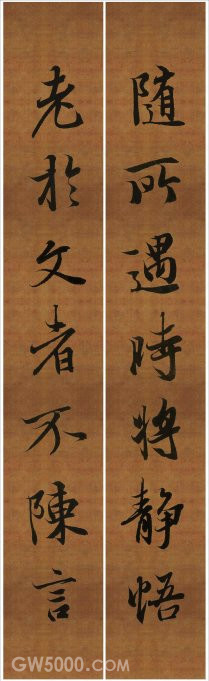 随所遇時將静悟
老於文者不陳言
GW5000.com